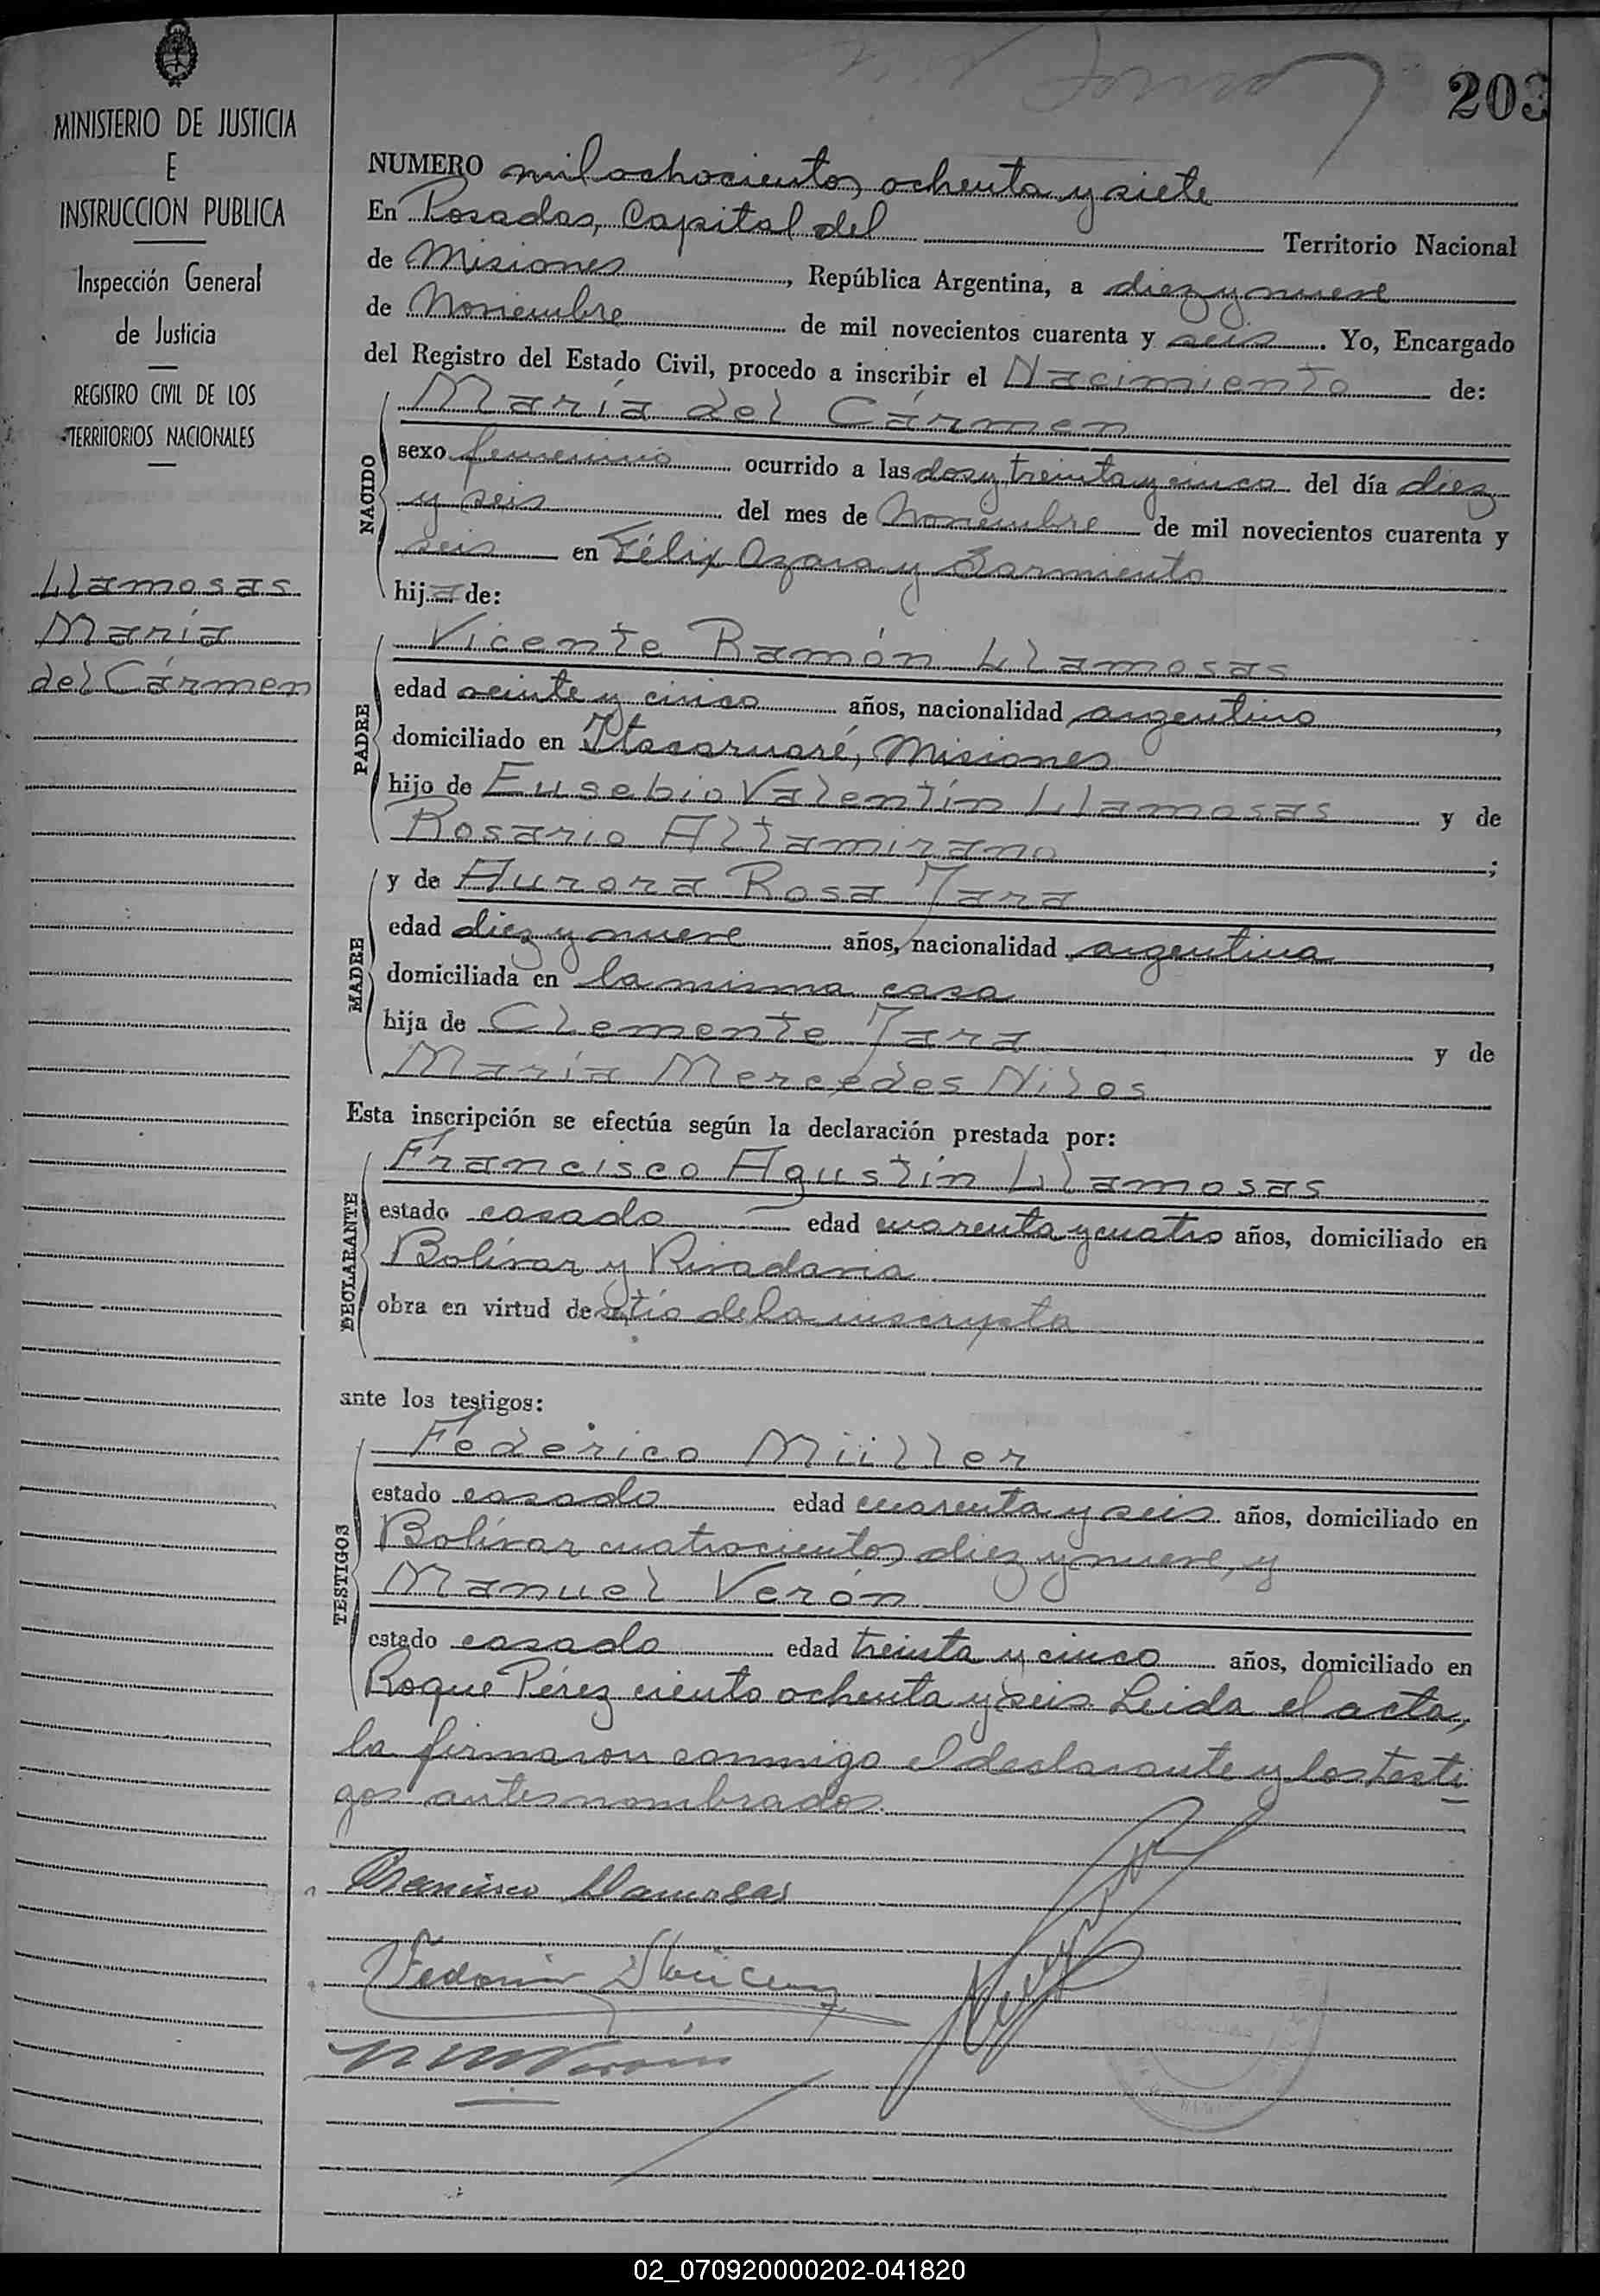 203
MINISTERIO DE JUSTICIA
E
INSTRUCCION PUBLICA
Inspección General
de Justicia
REGISTRO CIVIL DE LOS
TERRITORIOS NACIONALES
Llamosas
María
del Cármen
NUMERO mil ochocientos ochenta y siete
En Posadas, Capital del Territorio Nacional
de Misiones, República Argentina, a diez y nueve
de Noviembre de mil novecientos cuarenta y seis. Yo, Encargado
del Registro del Estado Civil, procedo a inscribir el Nacimiento de:
NACIDO
María del Cármen
sexo femenino ocurrido a las dos y treinta y cinco del día diez
y seis del mes de Noviembre de mil novecientos cuarenta y
seis en Félix Azara y Sarmiento
hija de:
PADRE
Vicente Ramón Llamosas
edad veinte y cinco años, nacionalidad argentino,
domiciliado en Itacaruaré, Misiones
hijo de Eusebio Valentín Llamosas y de
Rosario Altamirano;
MADRE
y de Aurora Rosa Jara
edad diez y nueve años, nacionalidad argentina,
domiciliada en la misma casa
hija de Clemente Jara y de
María Mercedes Nilos
Esta inscripción se efectúa según la declaración prestada por:
DECLARANTE
Francisco Agustín Llamosas
estado casado edad cuarenta y cuatro años, domiciliado en
Bolívar y Rivadavia
obra en virtud de ser tío de la inscrypta
ante los testigos:
TESTIGOS
Federico Müller
estado casado edad cuarenta y seis años, domiciliado en
Bolívar cuatrocientos diez y nueve, y
Manuel Verón
estado casado edad treinta y cinco años, domiciliado en
Roque Pérez ciento ochenta y seis. Leida el acta,
la firmaron conmigo el declarante y los testi
gos antes nombrados.
Francisco Llamosas
02_070920000202-041820